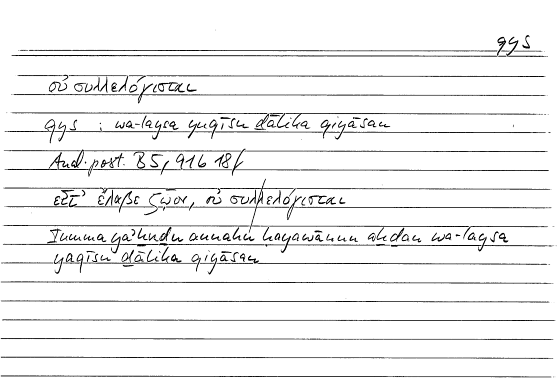 qys
οὐ συλλελόγισται
qys : wa-laysa yaqīsu ḏālika qiyāsan
Anal. post. B5, 91b 18f
εἶτ' ἔλαβε ζῷον, οὐ συλλελόγισται
Ṯumma yaʾḫuḏu annahū ḥayawānun aḫḏan wa-laysa
yaqīsu ḏālika qiyāsan